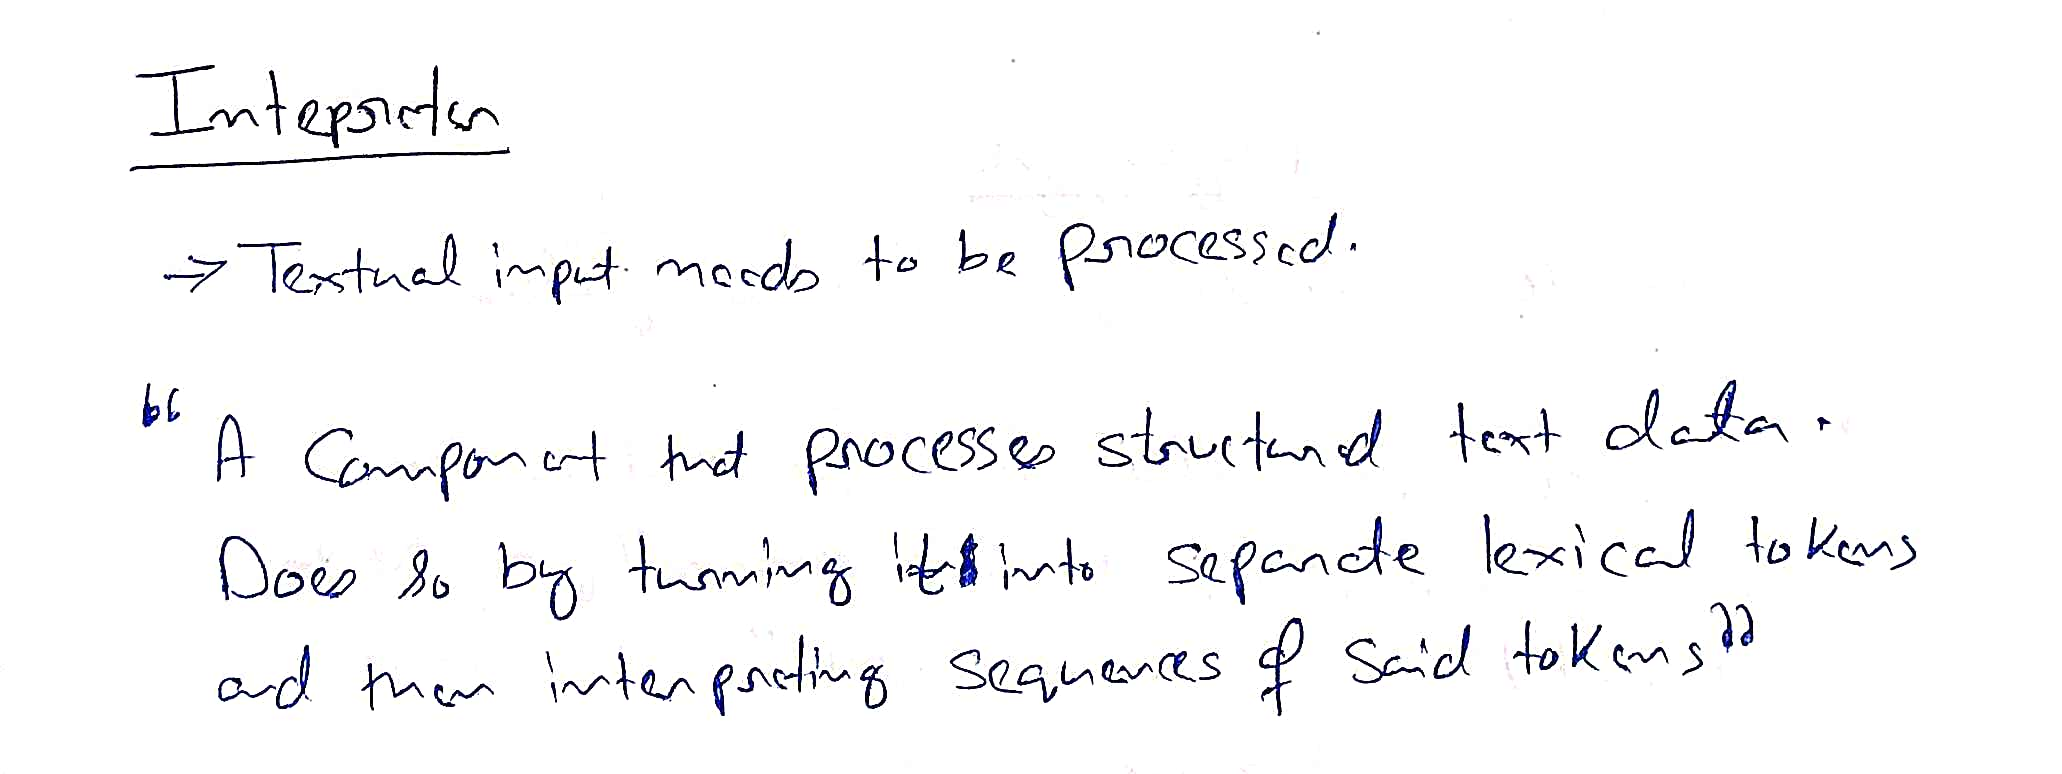 Intepreter
→ Textual input needs to be processed.
“A Component that processes structured text data.
Does so by turning it into separate lexical tokens
and then interpreting sequences of said tokens”